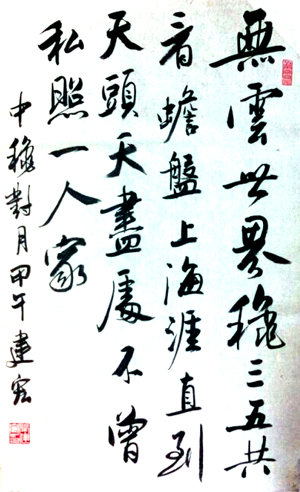 無雲世界穐三五共
看蟾盤上海涯直到
天頭天盡處不曾
私照一人家
中穐對月甲午建宏